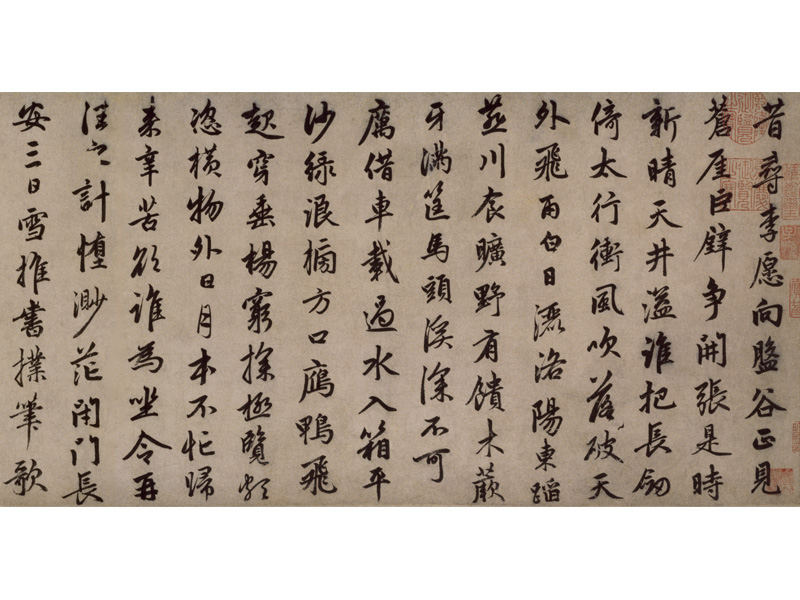 昔尋李愿向盤谷正見
蒼崖巨壁争開張是時
新晴天井溢誰把長劒
倚太行衝風吹落破天
外飛雨白日灑洛陽東蹈
燕川食曠野有饋木蕨
牙滿筐馬頭溪深不可
厲借車載過水入箱平
沙緑浪搒方口鴈鴨飛
起穿垂楊窮探極覽頗
恣橫物外日月本不忙歸
来辛苦欲誰為坐令再
往之計墮渺茫閉門長
安三日雪推書撲筆歌